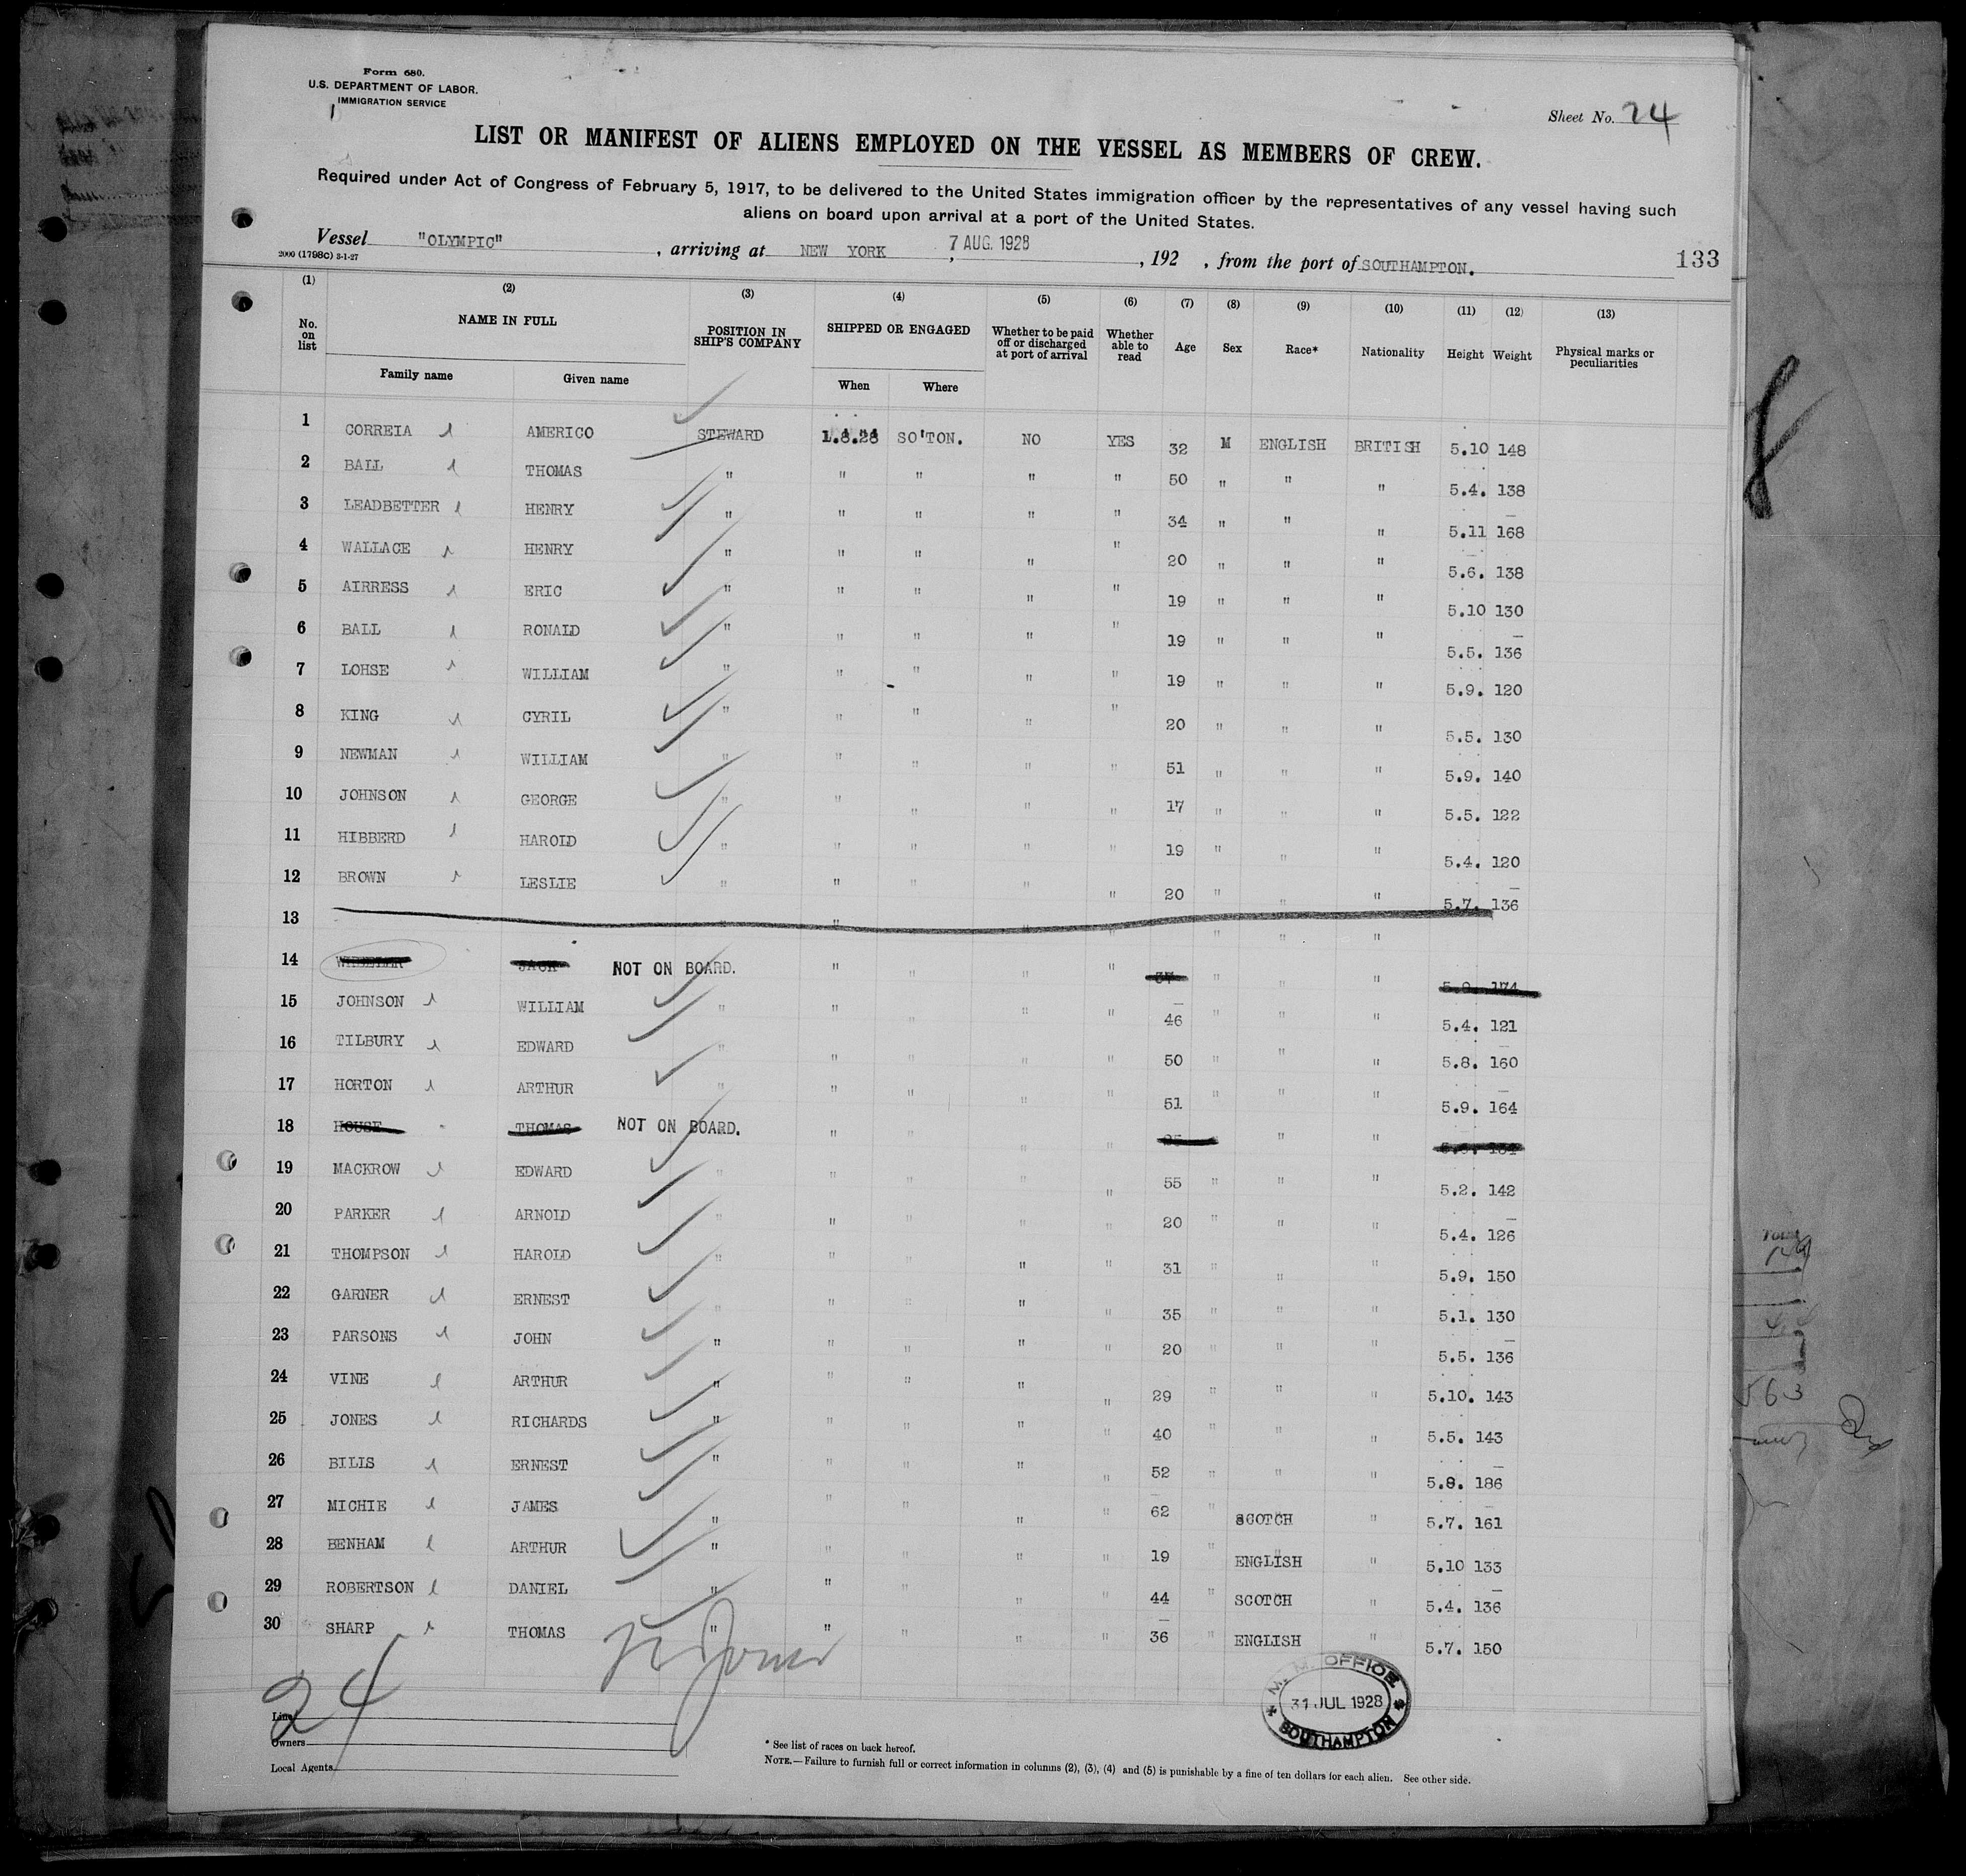 Form 680.
U.S. DEPARTMENT OF LABOR.
IMMIGRATION SERVICE
Sheet No. 24
LIST OR MANIFEST OF ALIENS EMPLOYED ON THE VESSEL AS MEMBERS OF CREW.
Required under Act of Congress of February 5, 1917, to be delivered to the United States immigration officer by the representatives of any vessel having such
aliens on board upon arrival at a port of the United States.
Vessel "OLYMPIC", arriving at NEW YORK, 7 AUG. 1928, 192 , from the port of SOUTHAMPTON. 133
2000 (1798c) 3-1-27
(1) (2) (3) (4) (5) (6) (7) (8) (9) (10) (11) (12) (13)
No. on list NAME IN FULL POSITION IN SHIP'S COMPANY SHIPPED OR ENGAGED Whether to be paid off or discharged at port of arrival Whether able to read Age Sex Race* Nationality Height Weight Physical marks or peculiarities
Family name Given name When Where
1 CORREIA AMERICO STEWARD 1.8.28 SO'TON. NO YES 32 M ENGLISH BRITISH 5.10 148
2 BALL THOMAS " " " " " 50 " " " 5.4. 138
3 LEADBETTER HENRY " " " " " 34 " " " 5.11 168
4 WALLACE HENRY " " " " " 20 " " " 5.6. 138
5 AIRRESS ERIC " " " " " 19 " " " 5.10 130
6 BALL RONALD " " " " " 19 " " " 5.5. 136
7 LOHSE WILLIAM " " " " " 19 " " " 5.9. 120
8 KING CYRIL " " " " " 20 " " " 5.5. 130
9 NEWMAN WILLIAM " " " " " 51 " " " 5.9. 140
10 JOHNSON GEORGE " " " " " 17 " " " 5.5. 122
11 HIBBERD HAROLD " " " " " 19 " " " 5.4. 120
12 BROWN LESLIE " " " " " 20 " " " 5.7. 136
13 " " " " " " "
14 WHEELER JACK NOT ON BOARD. " " " " 37 " " " 174
15 JOHNSON WILLIAM " " " " " 46 " " " 5.4. 121
16 TILBURY EDWARD " " " " " 50 " " " 5.8. 160
17 HORTON ARTHUR " " " " " 51 " " " 5.9. 164
18 HOUSE THOMAS NOT ON BOARD. " " " " " "
19 MACKROW EDWARD " " " " " 55 " " " 5.2. 142
20 PARKER ARNOLD " " " " " 20 " " " 5.4. 126
21 THOMPSON HAROLD " " " " " 31 " " " 5.9. 150
22 GARNER ERNEST " " " " " 35 " " " 5.1. 130
23 PARSONS JOHN " " " " " 20 " " " 5.5. 136
24 VINE ARTHUR " " " " " 29 " " " 5.10. 143
25 JONES RICHARDS " " " " " 40 " " " 5.5. 143
26 BILIS ERNEST " " " " " 52 " " " 5.8. 186
27 MICHIE JAMES " " " " " 62 " SCOTCH " 5.7. 161
28 BENHAM ARTHUR " " " " " 19 " ENGLISH " 5.10 133
29 ROBERTSON DANIEL " " " " " 44 " SCOTCH " 5.4. 136
30 SHARP THOMAS " " " " " 36 " ENGLISH " 5.7. 150
24
Line
Owners
Local Agents
M. M. OFFICE
31 JUL 1928
SOUTHAMPTON
* See list of races on back hereof.
NOTE.—Failure to furnish full or correct information in columns (2), (3), (4) and (5) is punishable by a fine of ten dollars for each alien. See other side.
8
Total
563